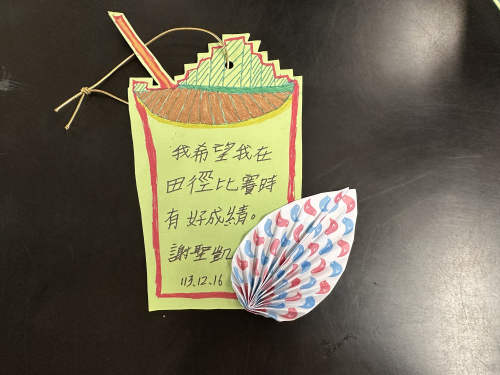 我希望我在
田徑比賽時
有好成績。
謝聖凱
113.12.16